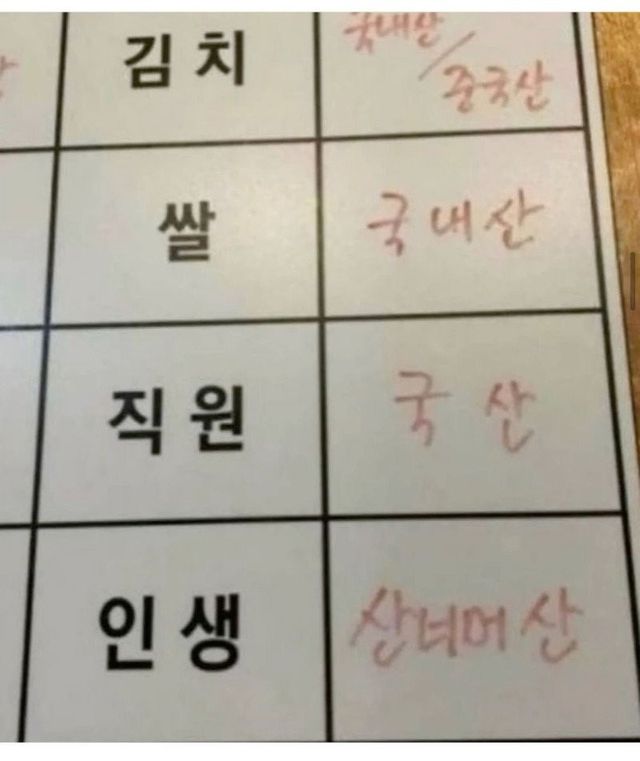 김치 국내산/
중국산
쌀 국내산
직원 국산
인생 산너머산